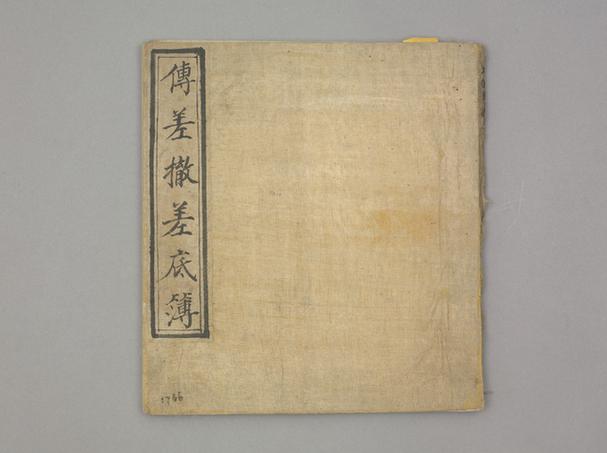 傳差撤差底簿
1766